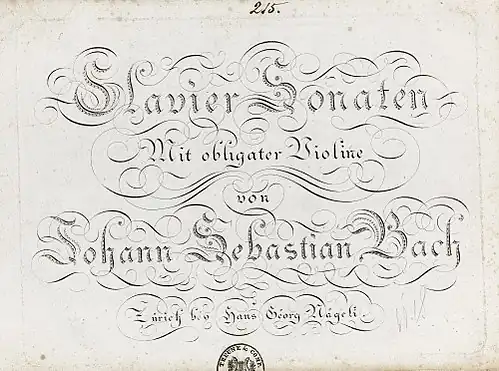 215.
Clavier Sonaten
Mit obligater Violine
von
Johann Sebastian Bach
Zürich bey Hans Georg Nägeli.